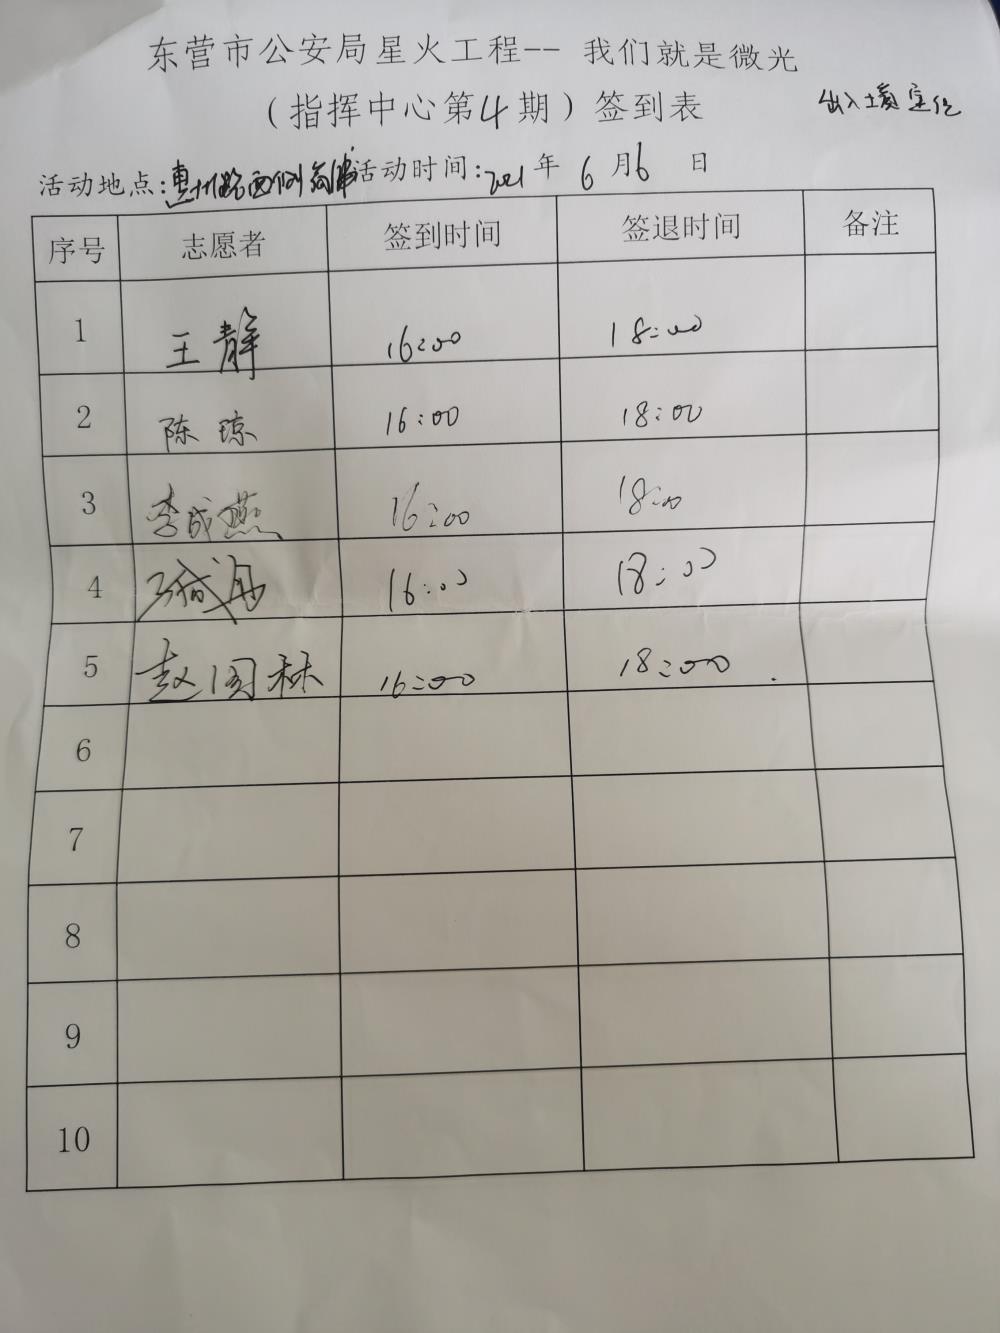 东营市公安局星火工程-- 我们就是微光
（指挥中心第4期）签到表
出入境
活动地点: 路西侧 活动时间: 2021年 6月6 日
序号 志愿者 签到时间 签退时间 备注
1 王静 16:00 18:00
2 陈琼 16:00 18:00
3 李成燕 16:00 18:00
4 16:00 18:00
5 赵国林 16:00 18:00
6
7
8
9
10